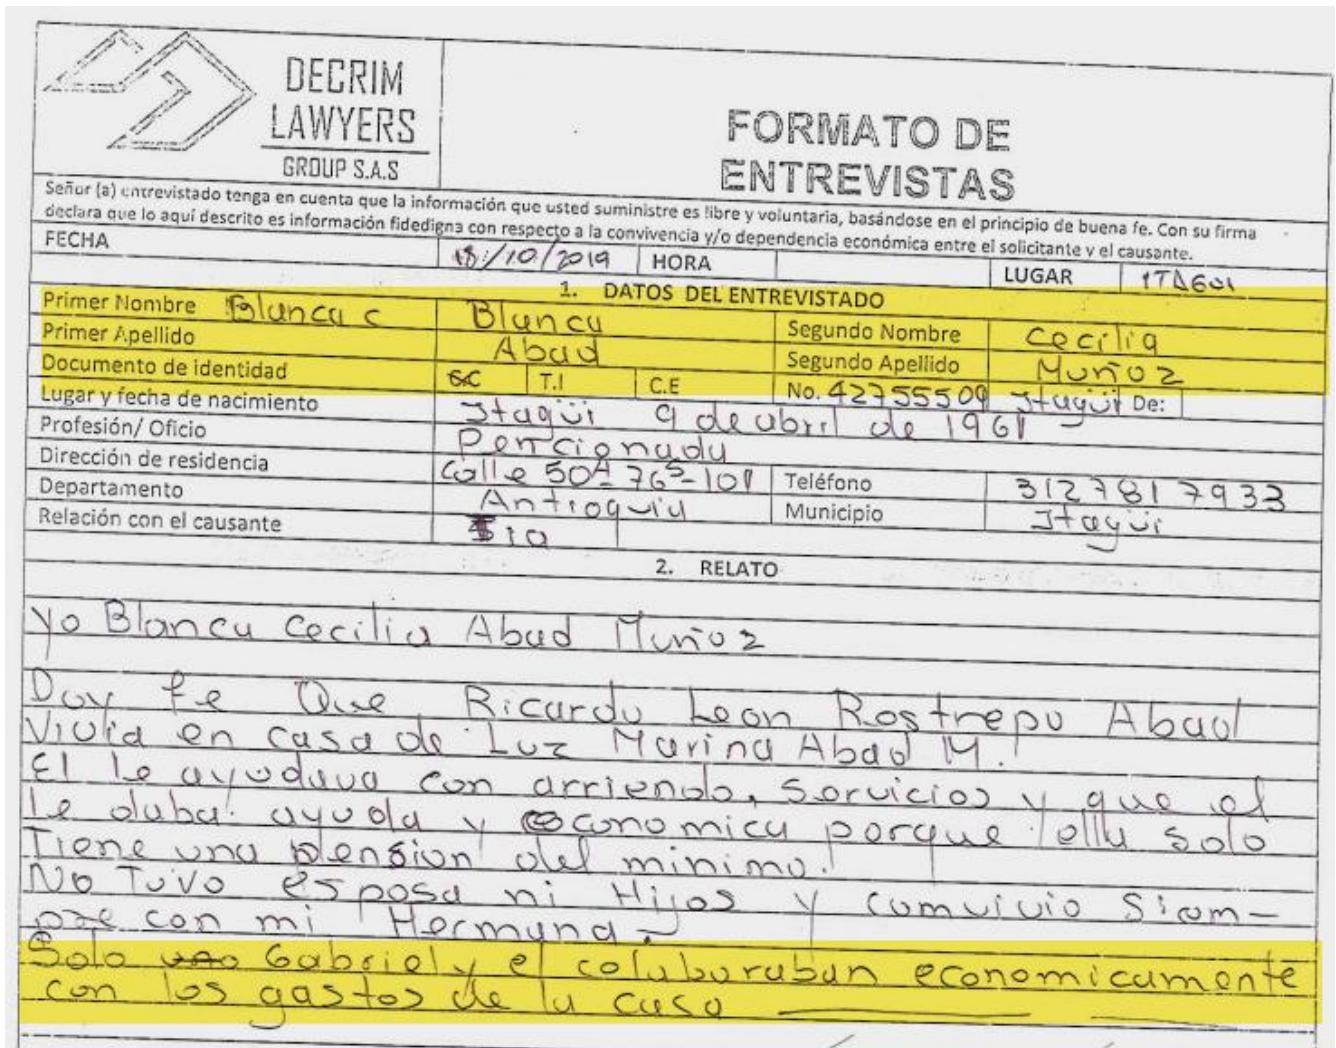 DECRIM
LAWYERS
GROUP S.A.S
FORMATO DE
ENTREVISTAS
Señor (a) entrevistado tenga en cuenta que la información que usted suministre es libre y voluntaria, basándose en el principio de buena fe. Con su firma
declara que lo aquí descrito es información fidedigna con respecto a la convivencia y/o dependencia económica entre el solicitante y el causante.
FECHA 18/10/2019 HORA LUGAR ITAGUI
1. DATOS DEL ENTREVISTADO
Primer Nombre Blanca c Blanca Segundo Nombre Cecilia
Primer Apellido Abad Segundo Apellido Muñoz
Documento de identidad T.I C.E No. 42755509 Itagüi De:
Lugar y fecha de nacimiento Itagüi 9 de abril de 1961
Profesión/ Oficio Pencionada
Dirección de residencia Calle 50A-76S-101 Teléfono 3127817933
Departamento Antioquia Municipio Itagüi
Relación con el causante Tia
2. RELATO
Yo Blanca Cecilia Abad Muñoz
Doy fe Que Ricardo Leon Rostrepo Abad
Vivia en casa de Luz Marina Abad M.
El le ayudava con arriendo, Servicios y que el
le daba ayuda y economica porque ella solo
Tiene una pension del minimo.
No Tuvo esposa ni Hijos y comvivio Siem-
pre con mi Hermana.
Solo Gabriel y el colaboraban economicamente
con los gastos de la casa